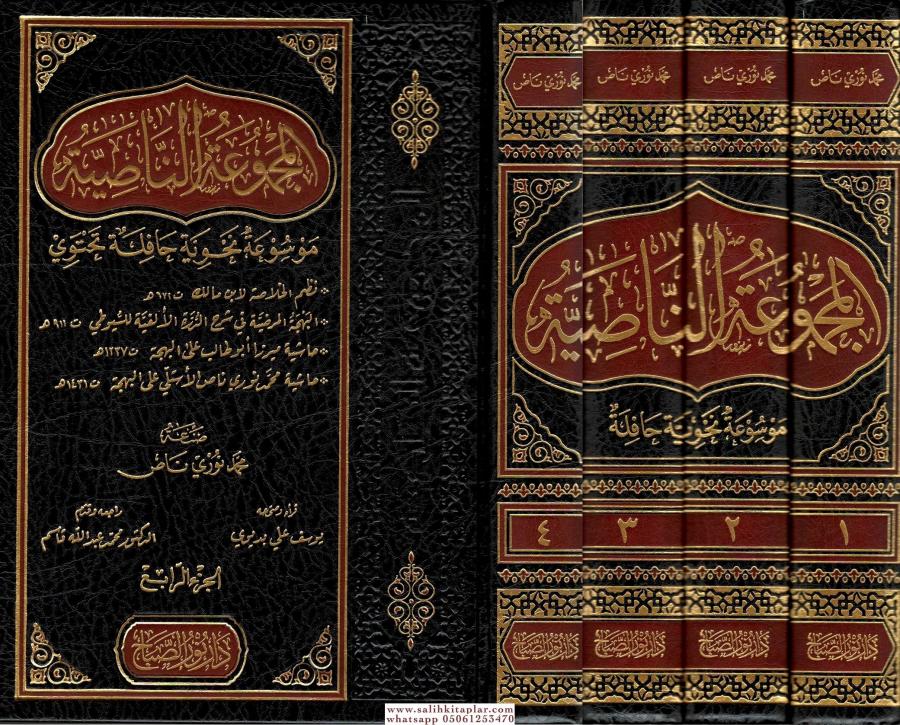 المجموعة الناصية
مَوْسُوعَةٌ نَحْوِيَّةٌ حَافِلَةٌ تَحْتَوِيْ
نظم الخلاصة لابن مالك ت ٦٧١هـ
البهجة المرضية في شرح الدرة الألفية للسيوطي ت ٩١١هـ
حاشية ميرزا أبو طالب على البهجة ت ١٢٣٧هـ
حاشية محمد نوري ناص الأستلي على البهجة ت ١٤٣١هـ
صنعة
محمد نوري ناص
قرأه وصححه
يوسف علي بديوي
راجعه وقدم
الدكتور محمد عبد الله قاسم
الجزء الرابع
دار نور الصباح
محمد نوري ناص
محمد نوري ناص
محمد نوري ناص
محمد نوري ناص
المجموعة الناصية
مَوْسُوعَةٌ نَحْوِيَّةٌ حَافِلَةٌ
١
٢
٣
٤
دار نور الصباح
دار نور الصباح
دار نور الصباح
دار نور الصباح
www.salihkitaplar.com
whatsapp 05061253470